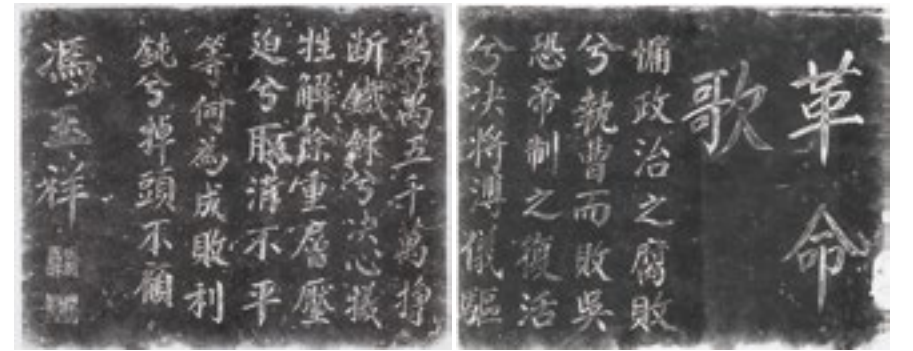 革命
歌
慟政治之腐敗
兮執曹而敗吳
恐帝制之復活
兮决將溥儀驅
萬五千萬掙
断鐵鍊兮决心犧
牲解除重層壓
迫兮肅清不平
等何為成敗利
鈍兮掉頭不顧
馮玉祥